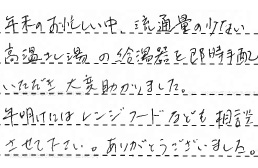 年末のお忙しい中、流通量の少ない
高温さし湯の給湯器を即時手配
いただき大変助かりました。
年明けにはレンジフードなども相談
させて下さい。ありがとうございました。